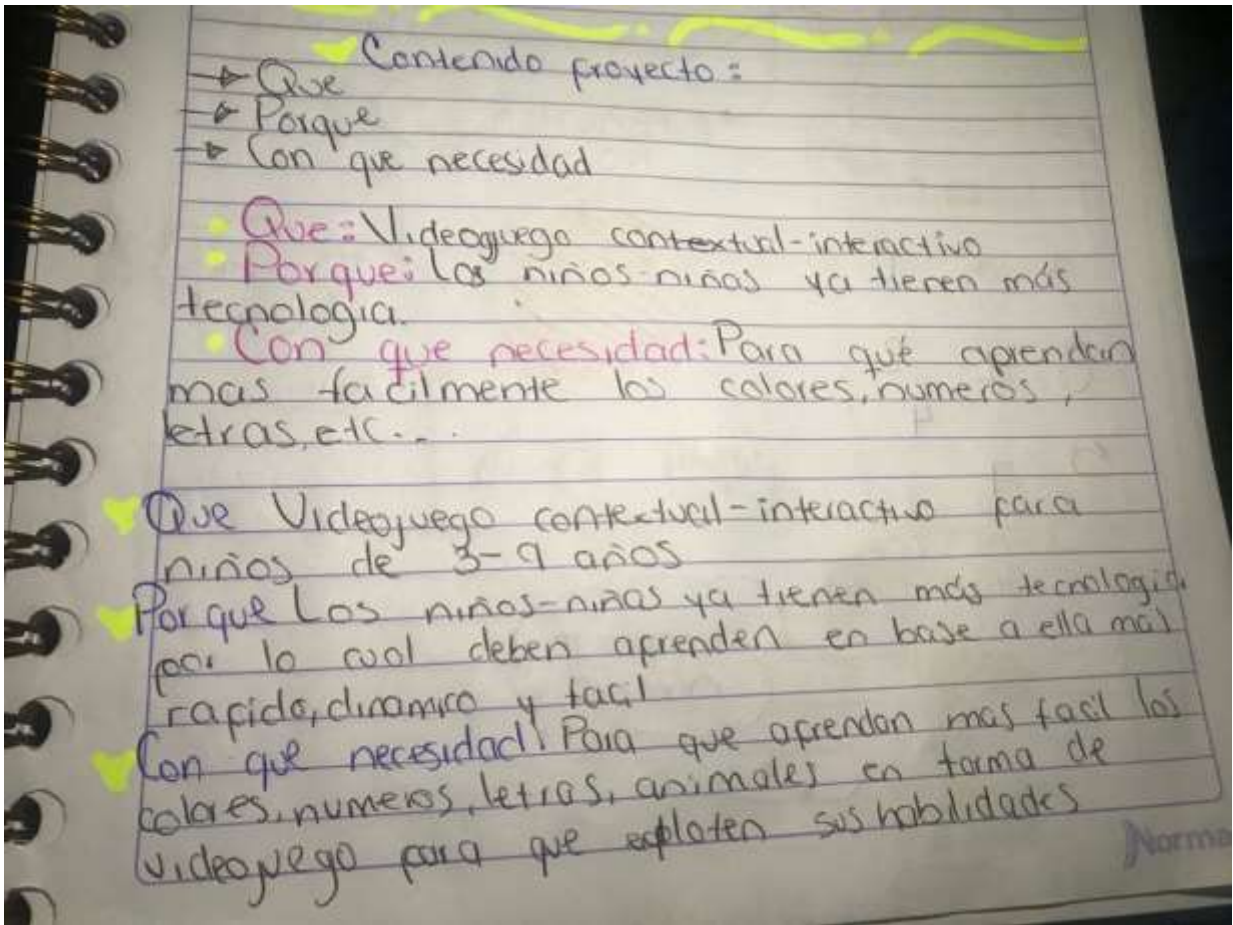 Contenido proyecto:
Que
Porque
Con que necesidad
Que: Videoguego contextual-interactivo
Por que: Los niños-niñas ya tienen más
tecnologia.
Con que necesidad: Para qué aprendan
mas facilmente los colores, numeros,
letras, etc...
Que Videojuego contextual-interactivo para
niños de 3-9 años
Por que Los niños-niñas ya tienen más tecnologia.
por lo cual deben aprenden en base a ella mas
rapido, dinamico y facil
Con que necesidad: Para que aprendan mas facil los
colores, numeros, letras, animales en forma de
videojuego para que exploten sus habilidades
Norma